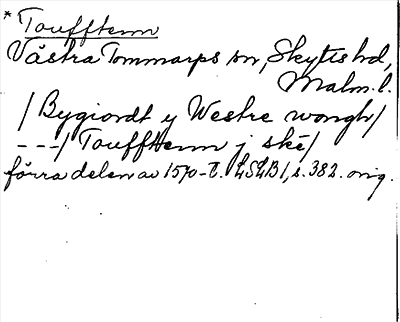 * Toufftenn
Västra Tommarps sn, Skytts hd,
Malm. l.
/ Bygiordt y Westre wongh/
---/ Toufftenn j ské/
förra delen av 1570-t. LSLB1, s. 382. orig.